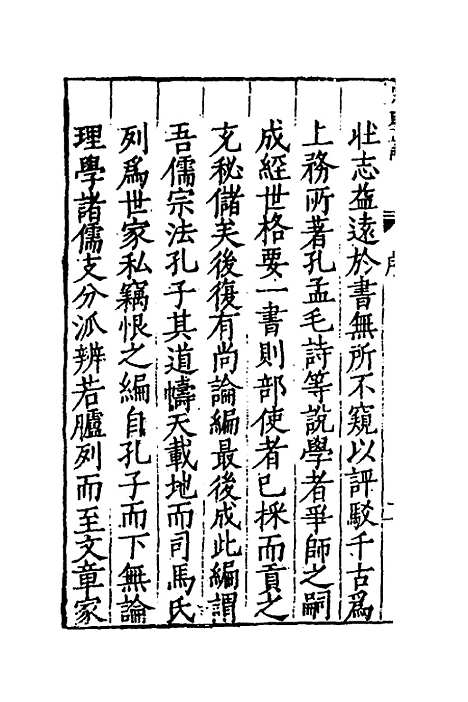 壯志益遠於書無所不窺以評駁千古爲
上務所著孔孟毛詩等說學者爭師之嗣
成經世格要一書則部使者已採而貢之
充秘儲矣後復有尚論編最後成此編謂
吾儒宗法孔子其道幬天載地而司馬氏
列爲世家私竊恨之編自孔子而下無論
理學諸儒支分派辨若臚列而至文章家